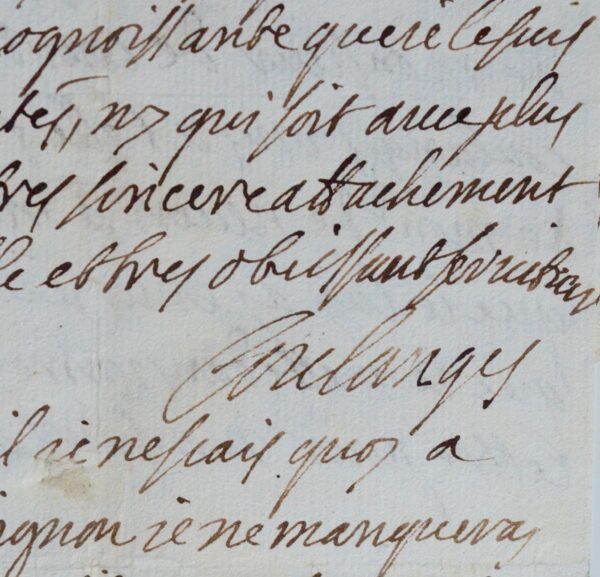 cognoissante que ie le suis
tés, ny qui soit avec plus
tres sincere attachement
le et tres obeissant serviteur
Coulanges
il ie ne scais quoy a
ignon ie ne manqueray